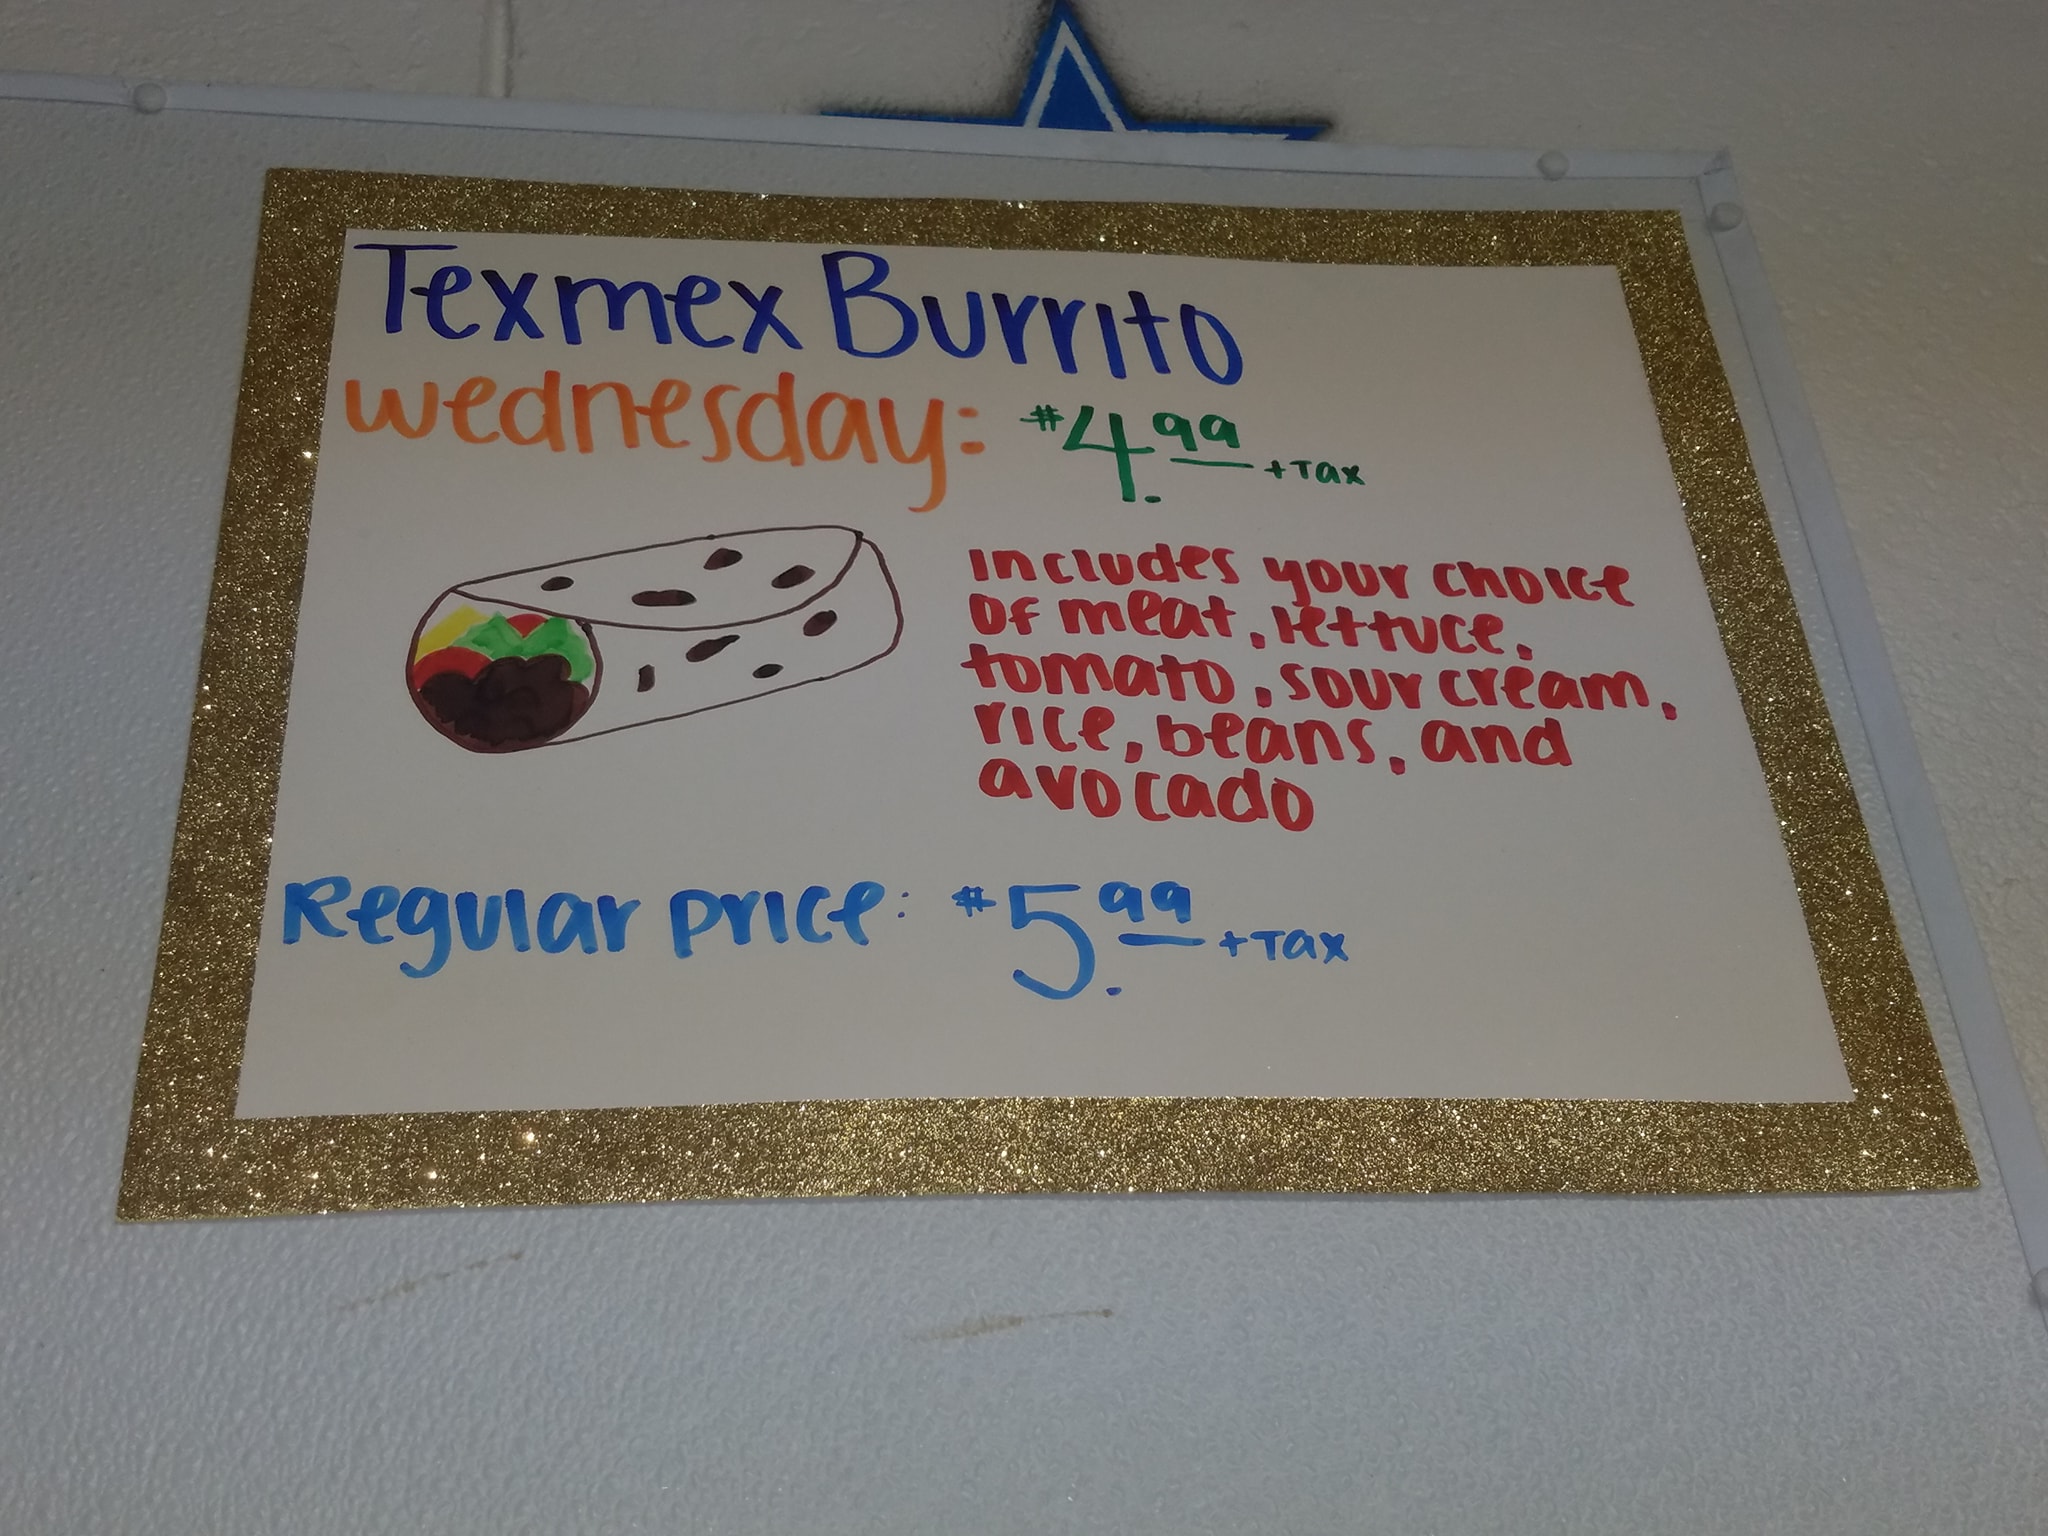 Texmex Burrito
Wednesday: $4.99 +Tax
Includes your choice
of meat, lettuce,
tomato, sour cream,
rice, beans, and
avocado
Regular price: $5.99 +Tax